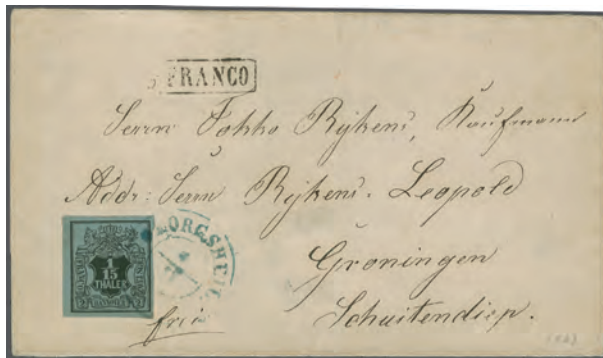 FRANCO
Herrn Fokko Rijkens, Kaufmann
Addr: Herrn Rijkens. Leopold
Groningen
Schuitendiep.
1
15
THALER
HANNOVER
frei